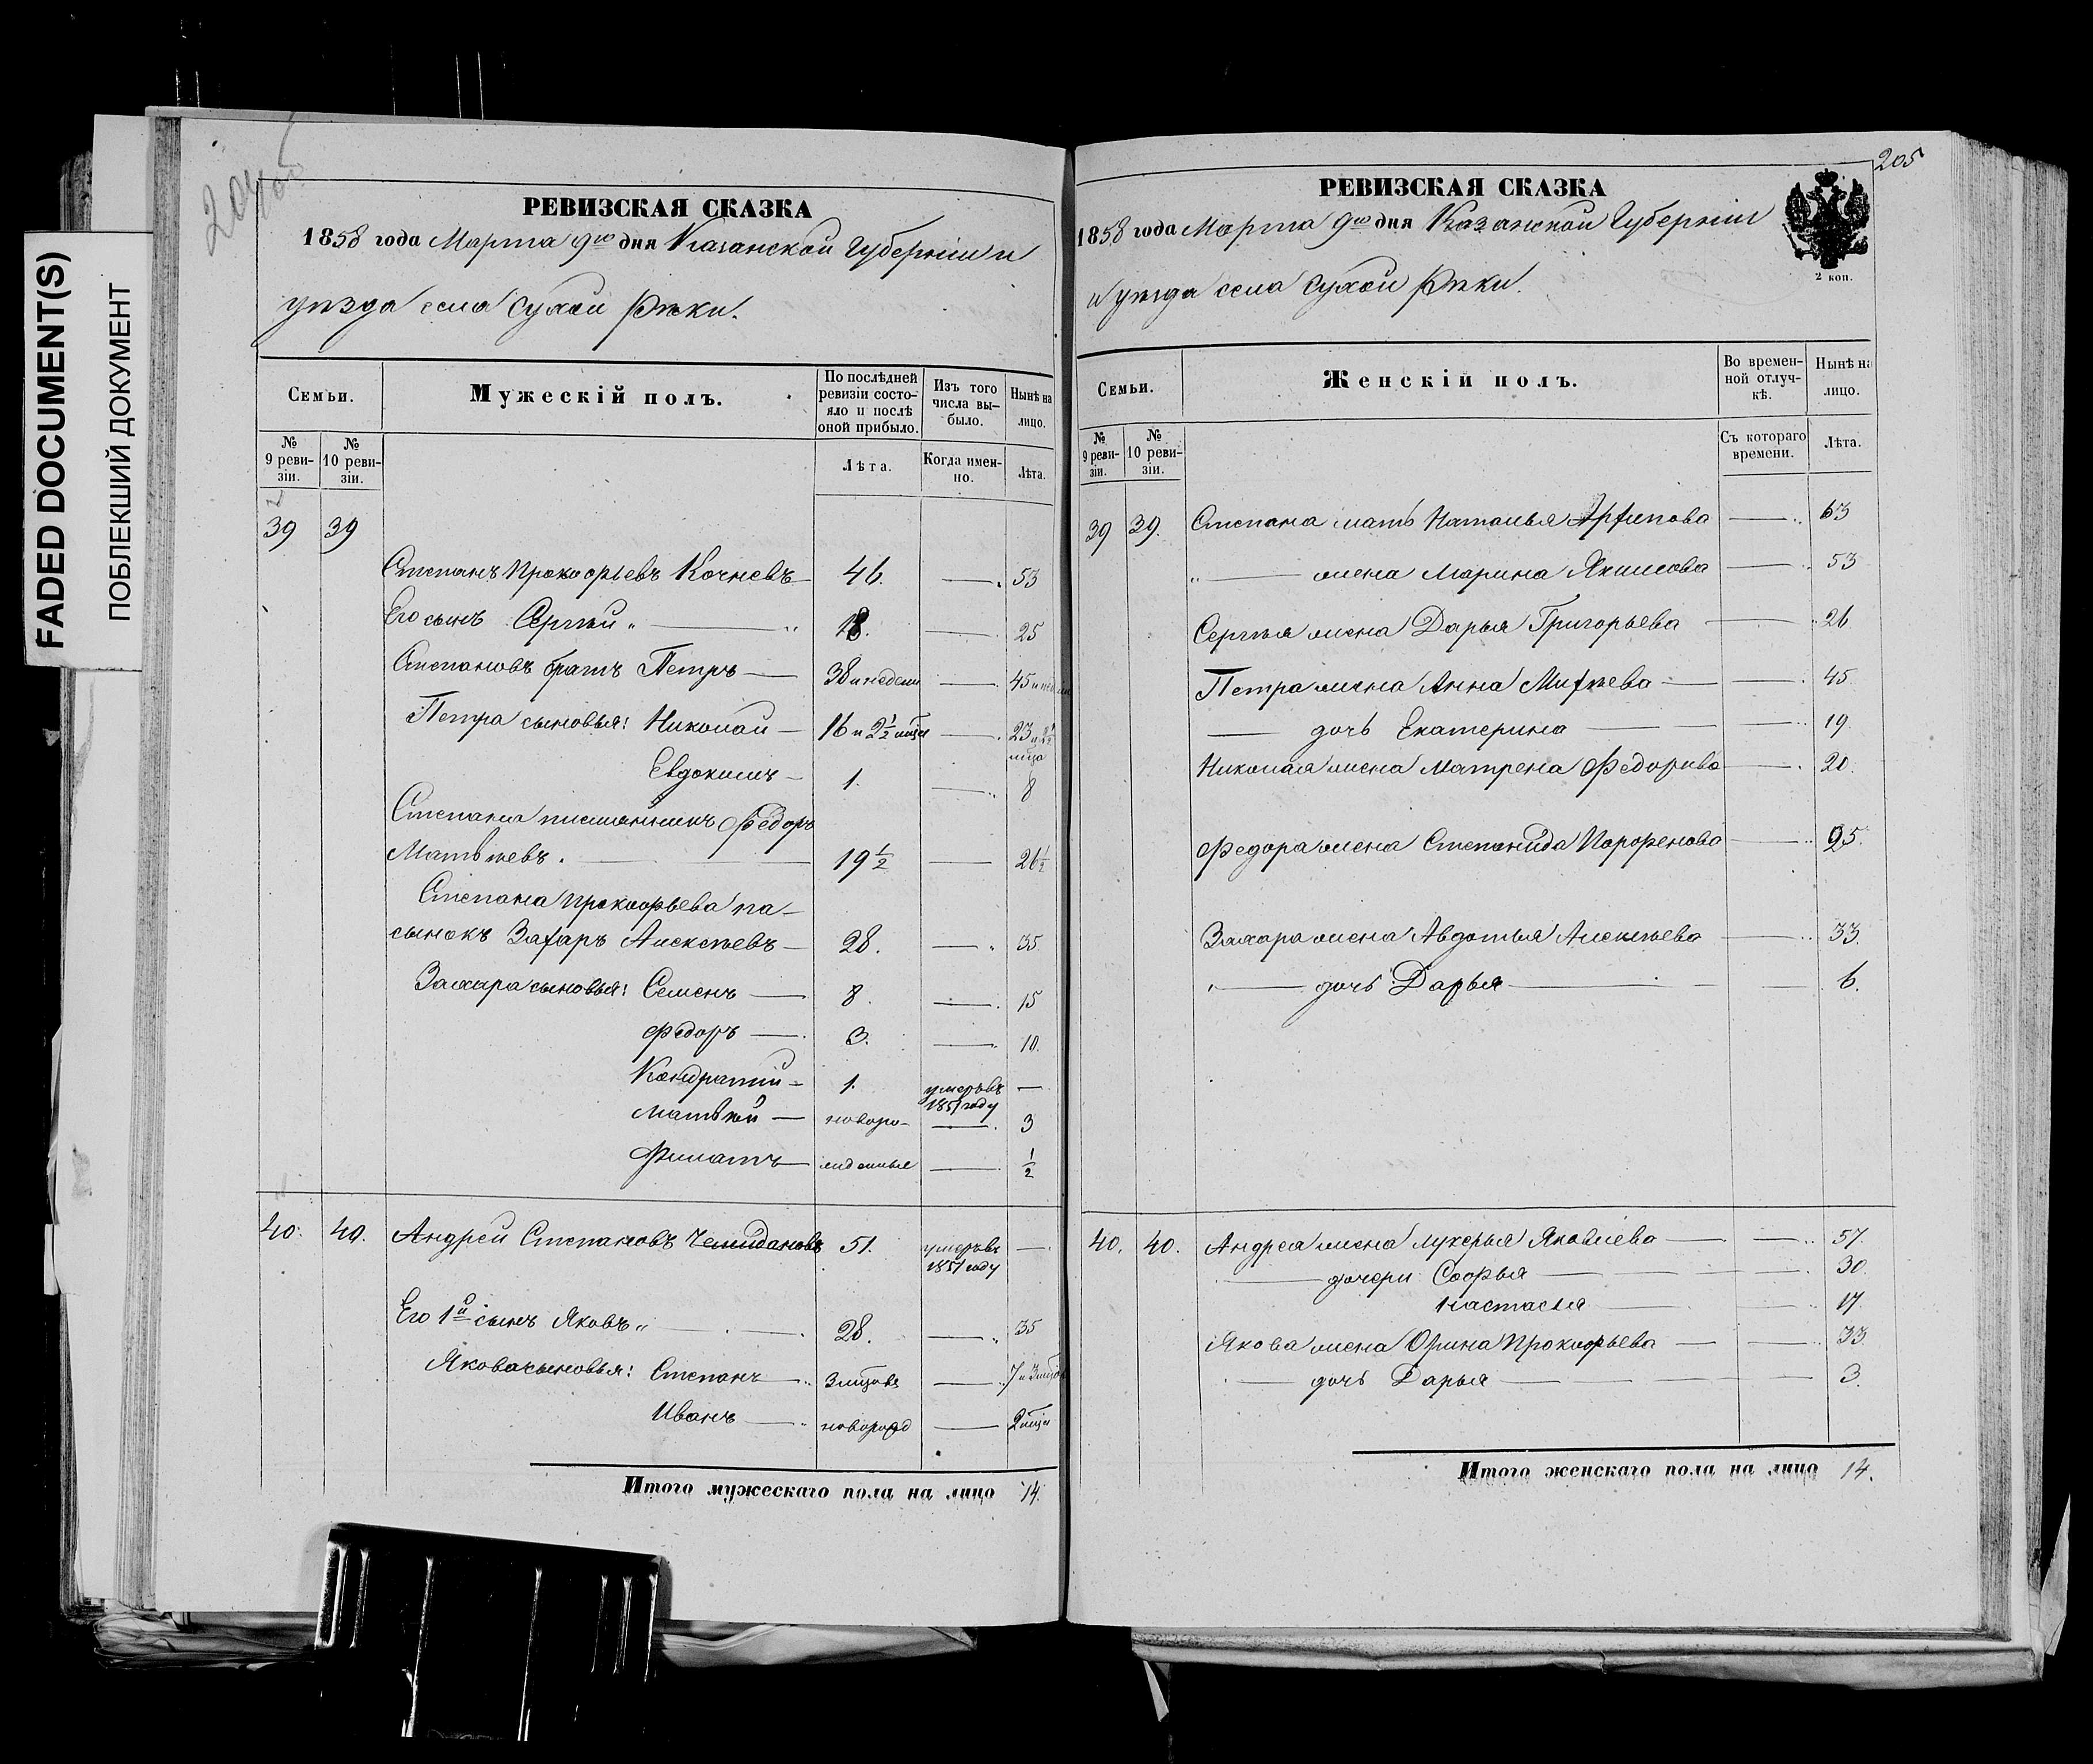 FADED DOCUMENT(S)
ПОБЛЕКШИЙ ДОКУМЕНТ
204
РЕВИЗСКАЯ СКАЗКА
1858 года Марта 9го дня Казанской Губерніи и
уѣзда села Сухой Рѣки.
Семьи.
Мужескій полъ.
По послѣдней ревизіи состояло и послѣ оной прибыло.
Изъ того числа выбыло.
Нынѣ на лицо.
№ 9 ревизіи.
№ 10 ревизіи.
Лѣта.
Когда именно.
Лѣта.
39 39
Степанъ Прокофьевъ Кочневъ 46. — 53
Его сынъ Сергѣй „ — 18. — 25
Степановъ братъ Петръ — 38 и недели — 45 и недели
Петра сыновья: Николай — 16 и 2½ мѣца — 23 и 2½ мѣца
Евдокимъ — 1. — 8
Степана племянникъ Федоръ
Матвѣевъ. — 19½ — 26½
Степана Прокофьева па-
сынокъ Захаръ Алексѣевъ — 28. — 35
Захара сыновья: Семенъ — 8. — 15
Федоръ — 3. — 10.
Кондратій — 1. умеръ въ 1851 году —
Матвѣй — новоро- — 3
Филатъ — жденные — ½
40. 40. Андрей Степановъ Чемидановъ 51. умеръ въ 1851 году —
Его 1й сынъ Яковъ „ — 28. — 35
Якова сыновья: Степанъ — 3 мѣцовъ — 7 и 3 мѣцовъ
Иванъ — новорожд — 2 мѣца
Итого мужескаго пола на лицо 14.
205
РЕВИЗСКАЯ СКАЗКА
1858 года Марта 9го дня Казанской Губерніи
и уѣзда села Сухой Рѣки.
2 коп.
Семьи.
Женскій полъ.
Во временной отлучкѣ.
Нынѣ на лицо.
№ 9 ревизіи.
№ 10 ревизіи.
Съ котораго времени.
Лѣта.
39 39. Степана мать Наталья Арфипова — 63
„ — жена Марина Якимова — 53
Сергѣя жена Дарья Григорьева — 26
Петра жена Анна Михѣева — 45.
— дочь Екатерина — 19.
Николая жена Матрена Федорова — 20.
Федора жена Степанида Парфенова — 25.
Захара жена Авдотья Алексѣева — 33.
„ — дочь Дарья — 6.
40. 40. Андрея жена Лукерья Яковлева — 57.
— дочери Софья — 30
Настасья — 17
Якова жена Орина Прокофьева — 33
— дочь Дарья — 3.
Итого женскаго пола на лицо 14.